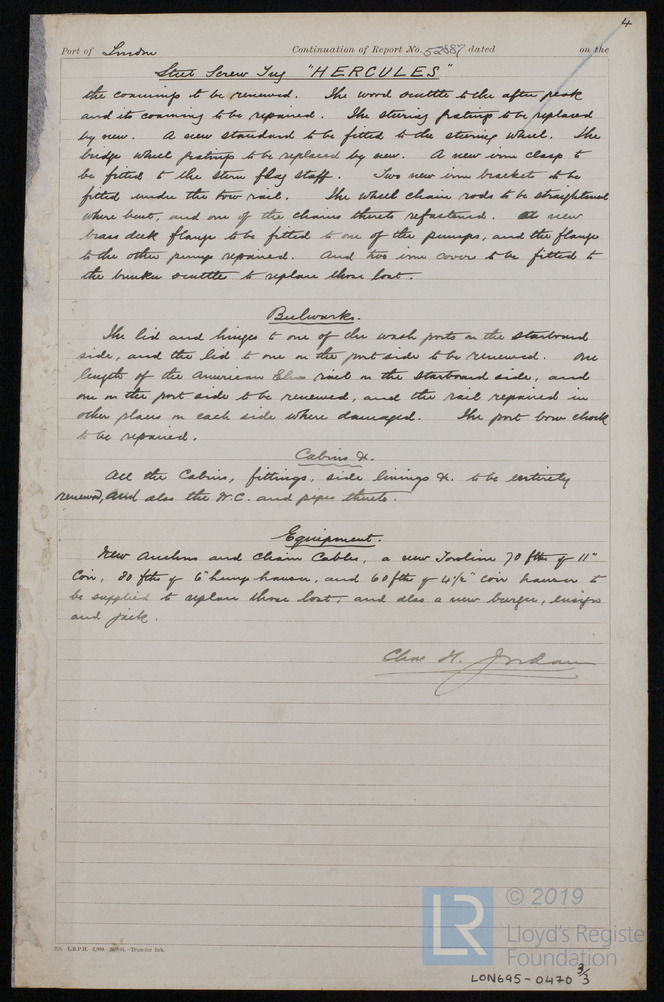 4
Port of London Continuation of Report No. 52887 dated on the
Steel Screw Tug "HERCULES"
the coamings to be renewed. The wood scuttle to the after peak
and its coaming to be repaired. The steering grating to be replaced
by new. A new standard to be fitted to the steering wheel. The
bridge wheel grating to be replaced by new. A new iron clasp to
be fitted to the stern flag staff. Two new iron brackets to be
fitted under the tow rail. The wheel chain rods to be straightened
where bent, and one of the chains thereto refastened. A new
brass deck flange to be fitted to one of the pumps, and the flange
to the other pump repaired. And two iron covers to be fitted to
the bunker scuttle to replace those lost.
Bulwarks.
The lid and hinges to one of the wash ports on the starboard
side, and the lid to one on the port side to be renewed. One
length of the American Elm rail on the starboard side, and
one on the port side to be renewed, and the rail repaired in
other places on each side where damaged. The port bow chock
to be repaired.
Cabins &.
All the Cabins, fittings, side linings &. to be entirely
renewed, and also the W.C. and pipes thereto.
Equipment.
New Anchors and Chain Cables, a new Towline 70 fths of 11"
Coir, 80 fths of 6" hemp hawser, and 60 fths of 4½" coir hawser to
be supplied to replace those lost, and also a new burgee, ensign
and jack.
Chas H. Jordan
L.R.P.H. Transfer Ink.
LR © 2019
Lloyd's Register
Foundation
LON695-0470 3/3